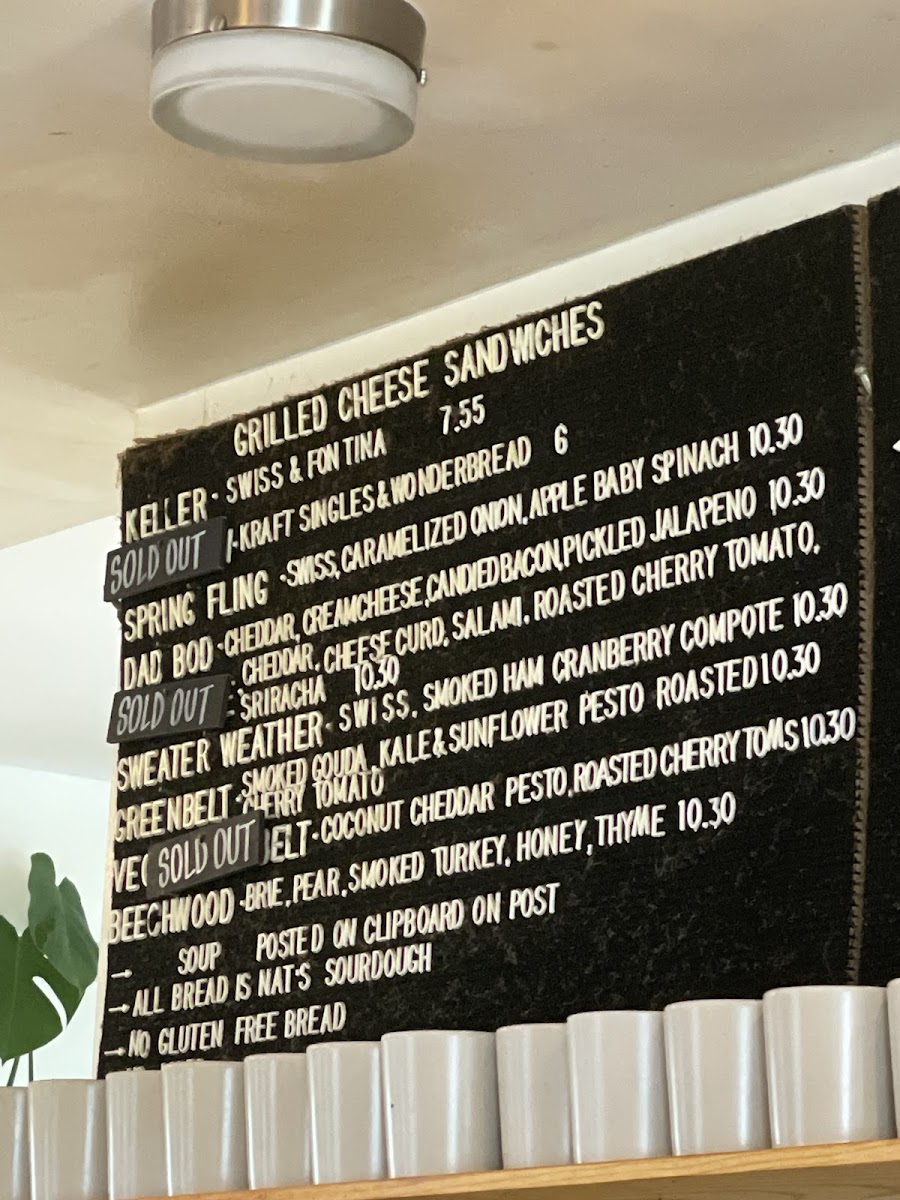 GRILLED CHEESE SANDWICHES
KELLER - SWISS & FONTINA 7.55
SOLD OUT - KRAFT SINGLES & WONDERBREAD 6
SPRING FLING - SWISS, CARAMELIZED ONION, APPLE BABY SPINACH 10.30
DAD BOD - CHEDDAR, CREAMCHEESE, CANDIED BACON, PICKLED JALAPENO 10.30
SOLD OUT CHEDDAR, CHEESE CURD, SALAMI, ROASTED CHERRY TOMATO,
SRIRACHA 10.30
SWEATER WEATHER - SWISS, SMOKED HAM CRANBERRY COMPOTE 10.30
GREENBELT - SMOKED GOUDA, KALE & SUNFLOWER PESTO ROASTED 10.30
CHERRY TOMATO
VEG SOLD OUT BELT - COCONUT CHEDDAR PESTO, ROASTED CHERRY TOMS 10.30
BEECHWOOD - BRIE, PEAR, SMOKED TURKEY, HONEY, THYME 10.30
→ SOUP POSTED ON CLIPBOARD ON POST
→ ALL BREAD IS NAT'S SOURDOUGH
→ NO GLUTEN FREE BREAD